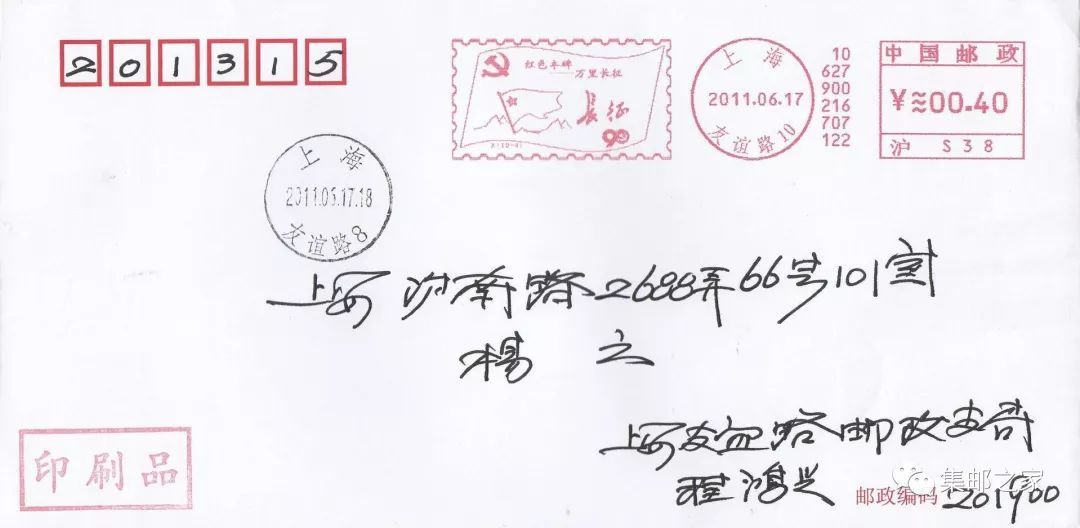 201315
红色丰碑
——万里长征
长征
90
上海
2011.06.17
友谊路10
10
627
900
216
707
122
中国邮政
¥≈00.40
沪 S38
上海
2011.06.17.18
友谊路8
上海沪南路2688弄66号101室
杨立
印刷品
上海友谊路邮政支局
程鸿兴
邮政编码 201900
集邮之家